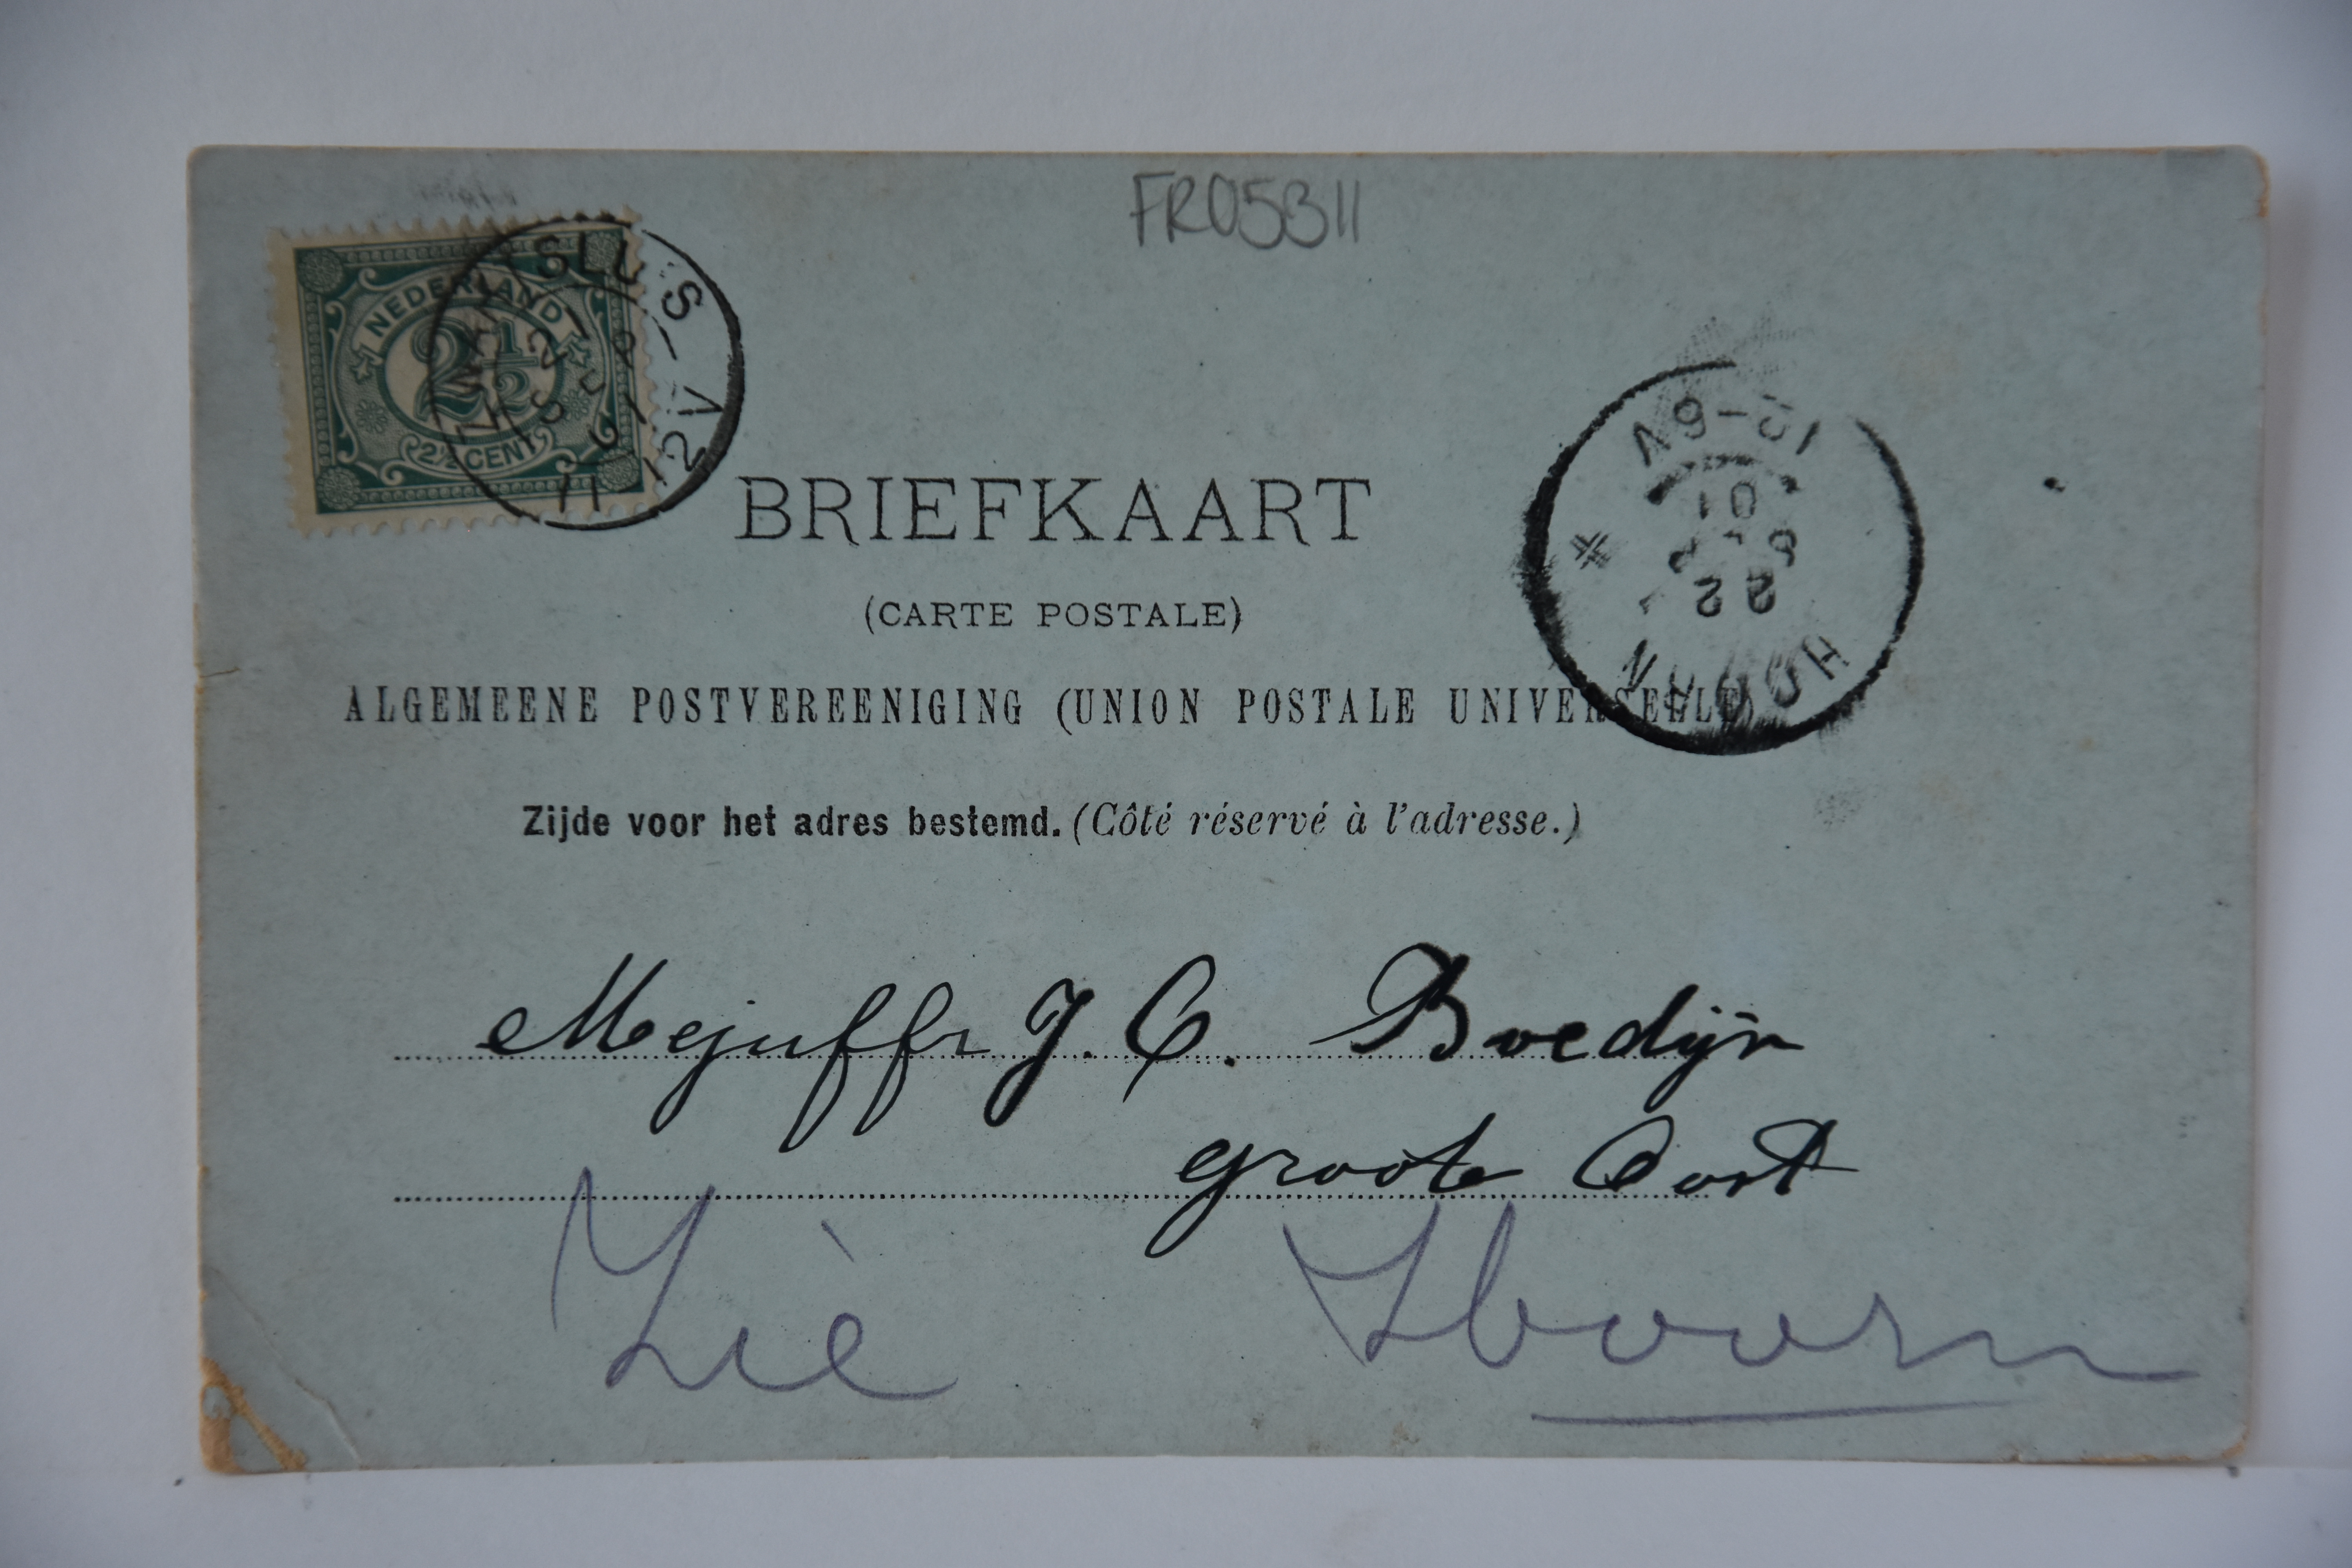 FR05311
NEDERLAND
2½
2½ CENT
11-12V
BRIEFKAART
(CARTE POSTALE)
ALGEMEENE POSTVEREENIGING (UNION POSTALE UNIVERSELLE)
HOORN
22
01
Zijde voor het adres bestemd. (Côté réservé à l'adresse.)
Mejuffr J. C. Boedijn
groote Oost
Hoorn